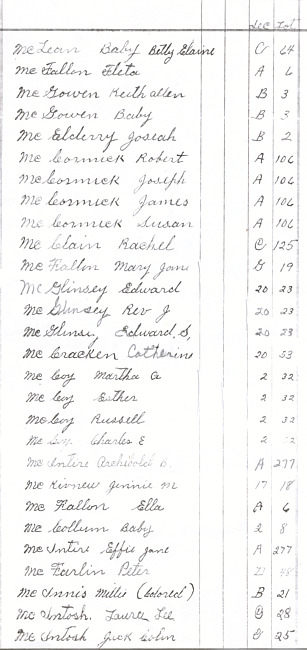 Sec Lot
McLean Baby Betty Elaine C 64
McFallon Fleta A 6
McGowen Keith allen B 3
McGowen Baby B 3
McElderry Josiah B 2
McCormick Robert A 106
McCormick Joseph A 106
McCormick James A 106
McCormick Susan A 106
McClain Rachel C 125
McFallon Mary Jane G 19
McGlinsey Edward 20 23
McGlinsey Rev J 20 23
McGlinsey Edward S, 20 23
McCracken Catherine 20 53
McCoy Martha A 2 32
McCoy Esther 2 32
McCoy Russell 2 32
McCoy Charles E 2 32
McIntire Archibold D. A 277
McKinnew Jennie M 17 18
McFallon Ella A 6
McCollum Baby 2 8
McIntire Effie Jane A 277
McFarlin Peter D 48
McInnis Millie (colored) B 21
McIntosh. Laura Lee 28
McIntosh Jack Colin 25